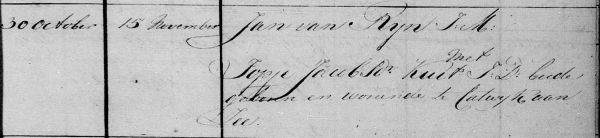 30 October 15 November Jan van Ryn J: M:
met
Jopje Jacobsdr Kuit J: D: beide
geboren en wonende te Catwyk aan
Zee.